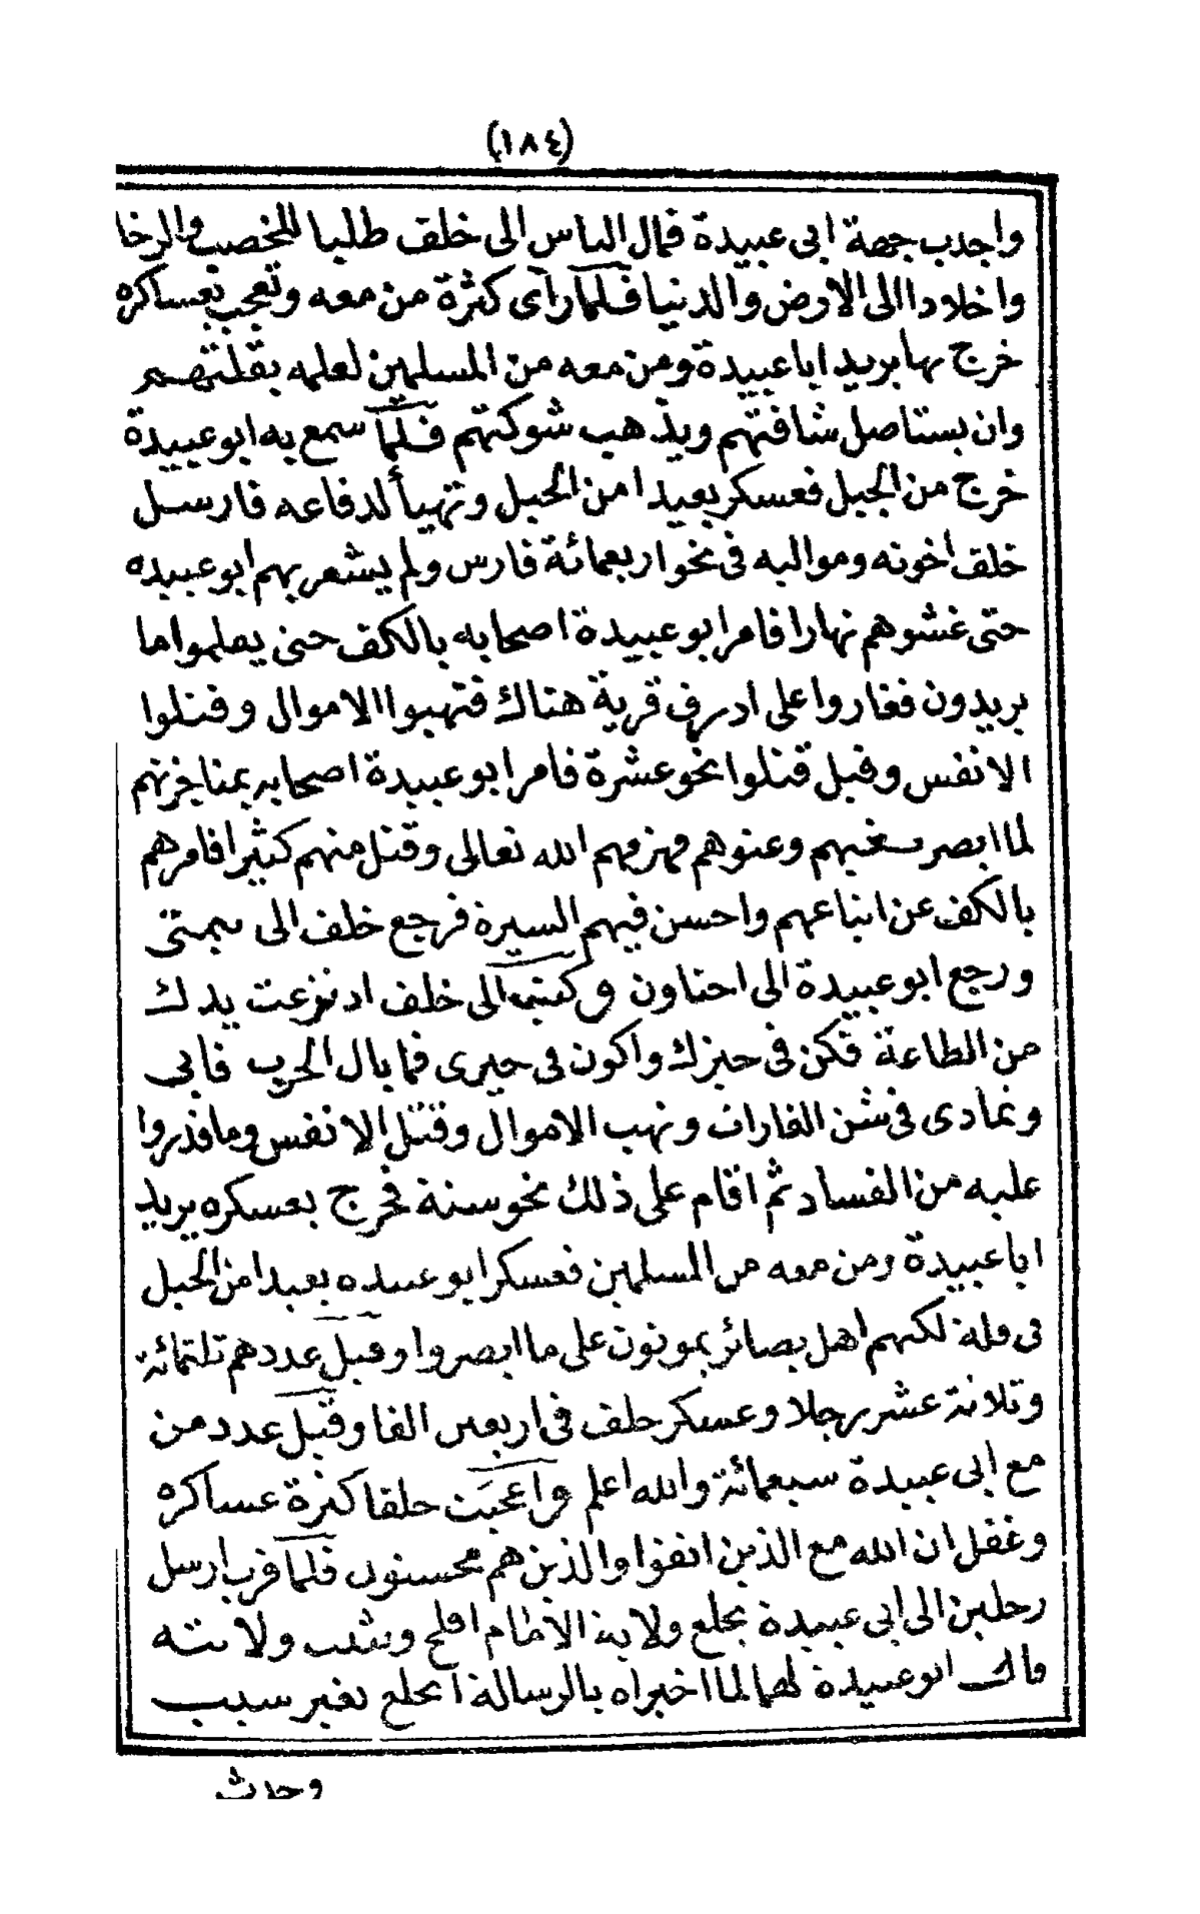 (١٨٤)
واجدب جهة ابى عبيدة فمال الناس الى خلف طلبا للخصب والرخا
واخلدوا الى الارض والدنيا فلما رآى كثرة من معه وتعجب بعساكره
خرج بها يريد ابا عبيدة ومن معه من المسلمين لعلمه بقلتهم
وان يستاصل شافتهم ويذهب شوكتهم فلما سمع به ابو عبيدة
خرج من الجبل فعسكر بعيدا من الجبل وتهيأ لدفاعه فارسل
خلف اخوته ومواليه فى نحو اربعمائة فارس ولم يشعر بهم ابو عبيده
حتى غشوهم نهارا فامر ابو عبيدة اصحابه بالكف حتى يعلموا ما
يريدون فغاروا على ادرف قرية هناك فنهبوا الاموال وقتلوا
الانفس وقيل قتلوا نحو عشرة فامر ابو عبيدة اصحابه بمناجزتهم
لما ابصر بغيهم وعتوهم فهزمهم الله تعالى وقتل منهم كثيرا فامرهم
بالكف عن اتباعهم واحسن فيهم السيرة فرجع خلف الى تيمتى
ورجع ابو عبيدة الى اجناون وكتب الى خلف اد نزعت يدك
من الطاعة فكن فى حيزك واكون فى حيزى فما بال الحرب فابى
وتمادى فى شن الغارات ونهب الاموال وقتل الانفس وما قذروا
عليه من الفساد ثم اقام على ذلك نحو سنة فخرج بعسكره يريد
ابا عبيدة ومن معه من المسلمين فعسكر ابو عبيده بعيدا من الجبل
فى قلة لكنهم اهل بصائر يموتون على ما ابصروا وقيل عددهم ثلثمائة
وثلاثة عشر رجلا وعسكر خلف فى اربعين الفا وقيل عدد من
مع ابى عبيدة سبعمائة والله اعلم واعجبت خلفا كثرة عساكره
وغفل ان الله مع الذين اتقوا والذين هم محسنون فلما قرب ارسل
رجلين الى ابى عبيدة بخلع ولاية الامام افلح وتثبت ولايته
قال ابو عبيدة لهما لما اخبراه بالرسالة أيخلع بغير سبب
وحدث